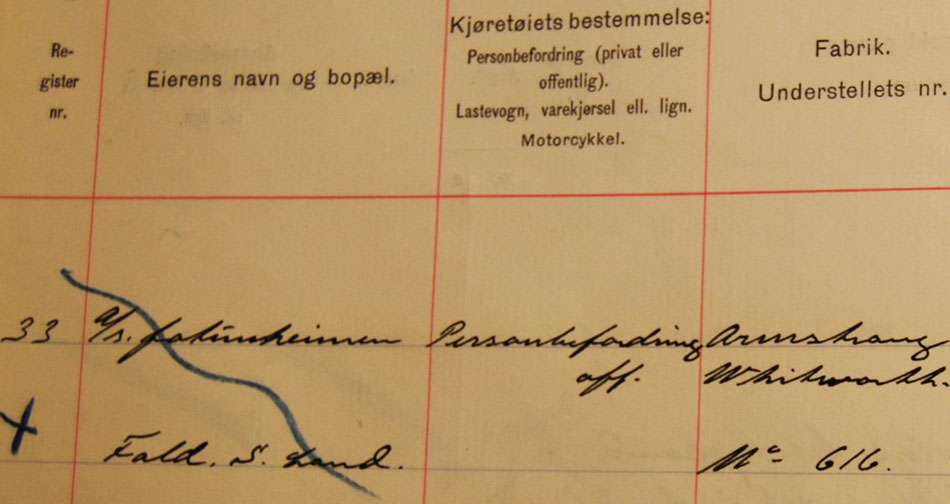 Re-
gister
nr.
Eierens navn og bopæl.
Kjøretøiets bestemmelse:
Personbefordring (privat eller
offentlig).
Lastevogn, varekjørsel ell. lign.
Motorcykkel.
Fabrik.
Understellets nr.
33 A/s. Jotunheimen Personbefordring Armstrong
off. Whitworth.
Fald. S. Land. No 616.